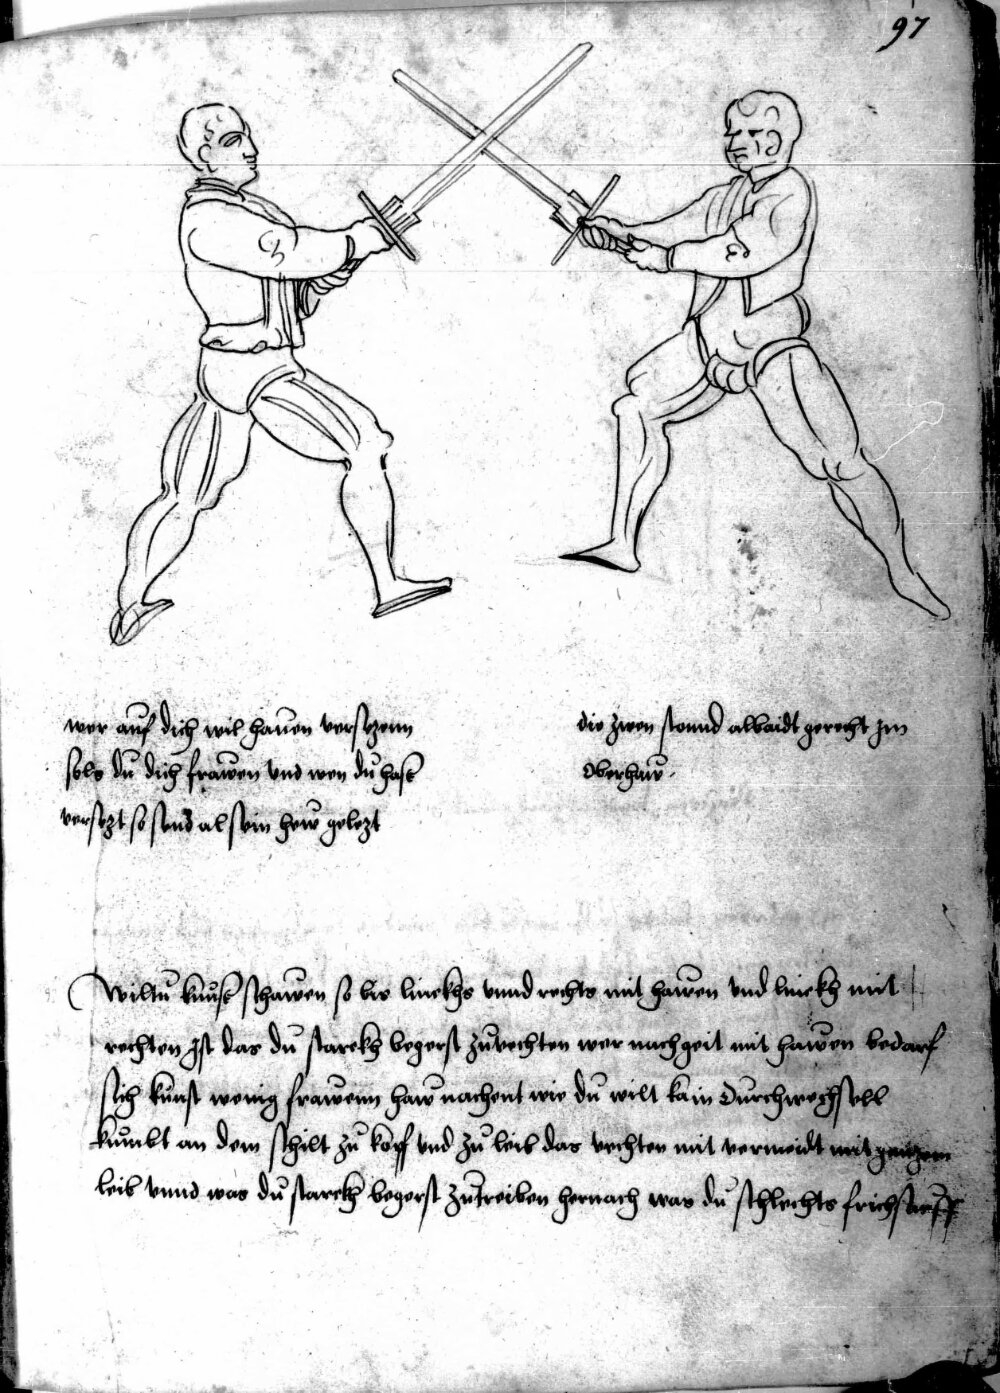 97
wer auf dich wil hauen versetzenn
sols du dich frawen vnd wen du hast
versetzt so send al sein hew geletzt
die zwen stonnd albaidt gerecht Im
Oberhaw.
Wiltu kunst schawen so bis linckhs vnnd rechts mit hawen vnd linckh mit
rechten Ist das du starckh begerst zuvechten wer nachgeit mit hawen bedarf
sich kunst wenig frawenn haw nachent wie du wilt kain Durchwechsell
kumbt an dem schilt zu kopf vnd zu leib das vechten mit vermeidt mit gantzem
leib vnnd was du starckh begerst zutreiben hernach was du schlechts frichs